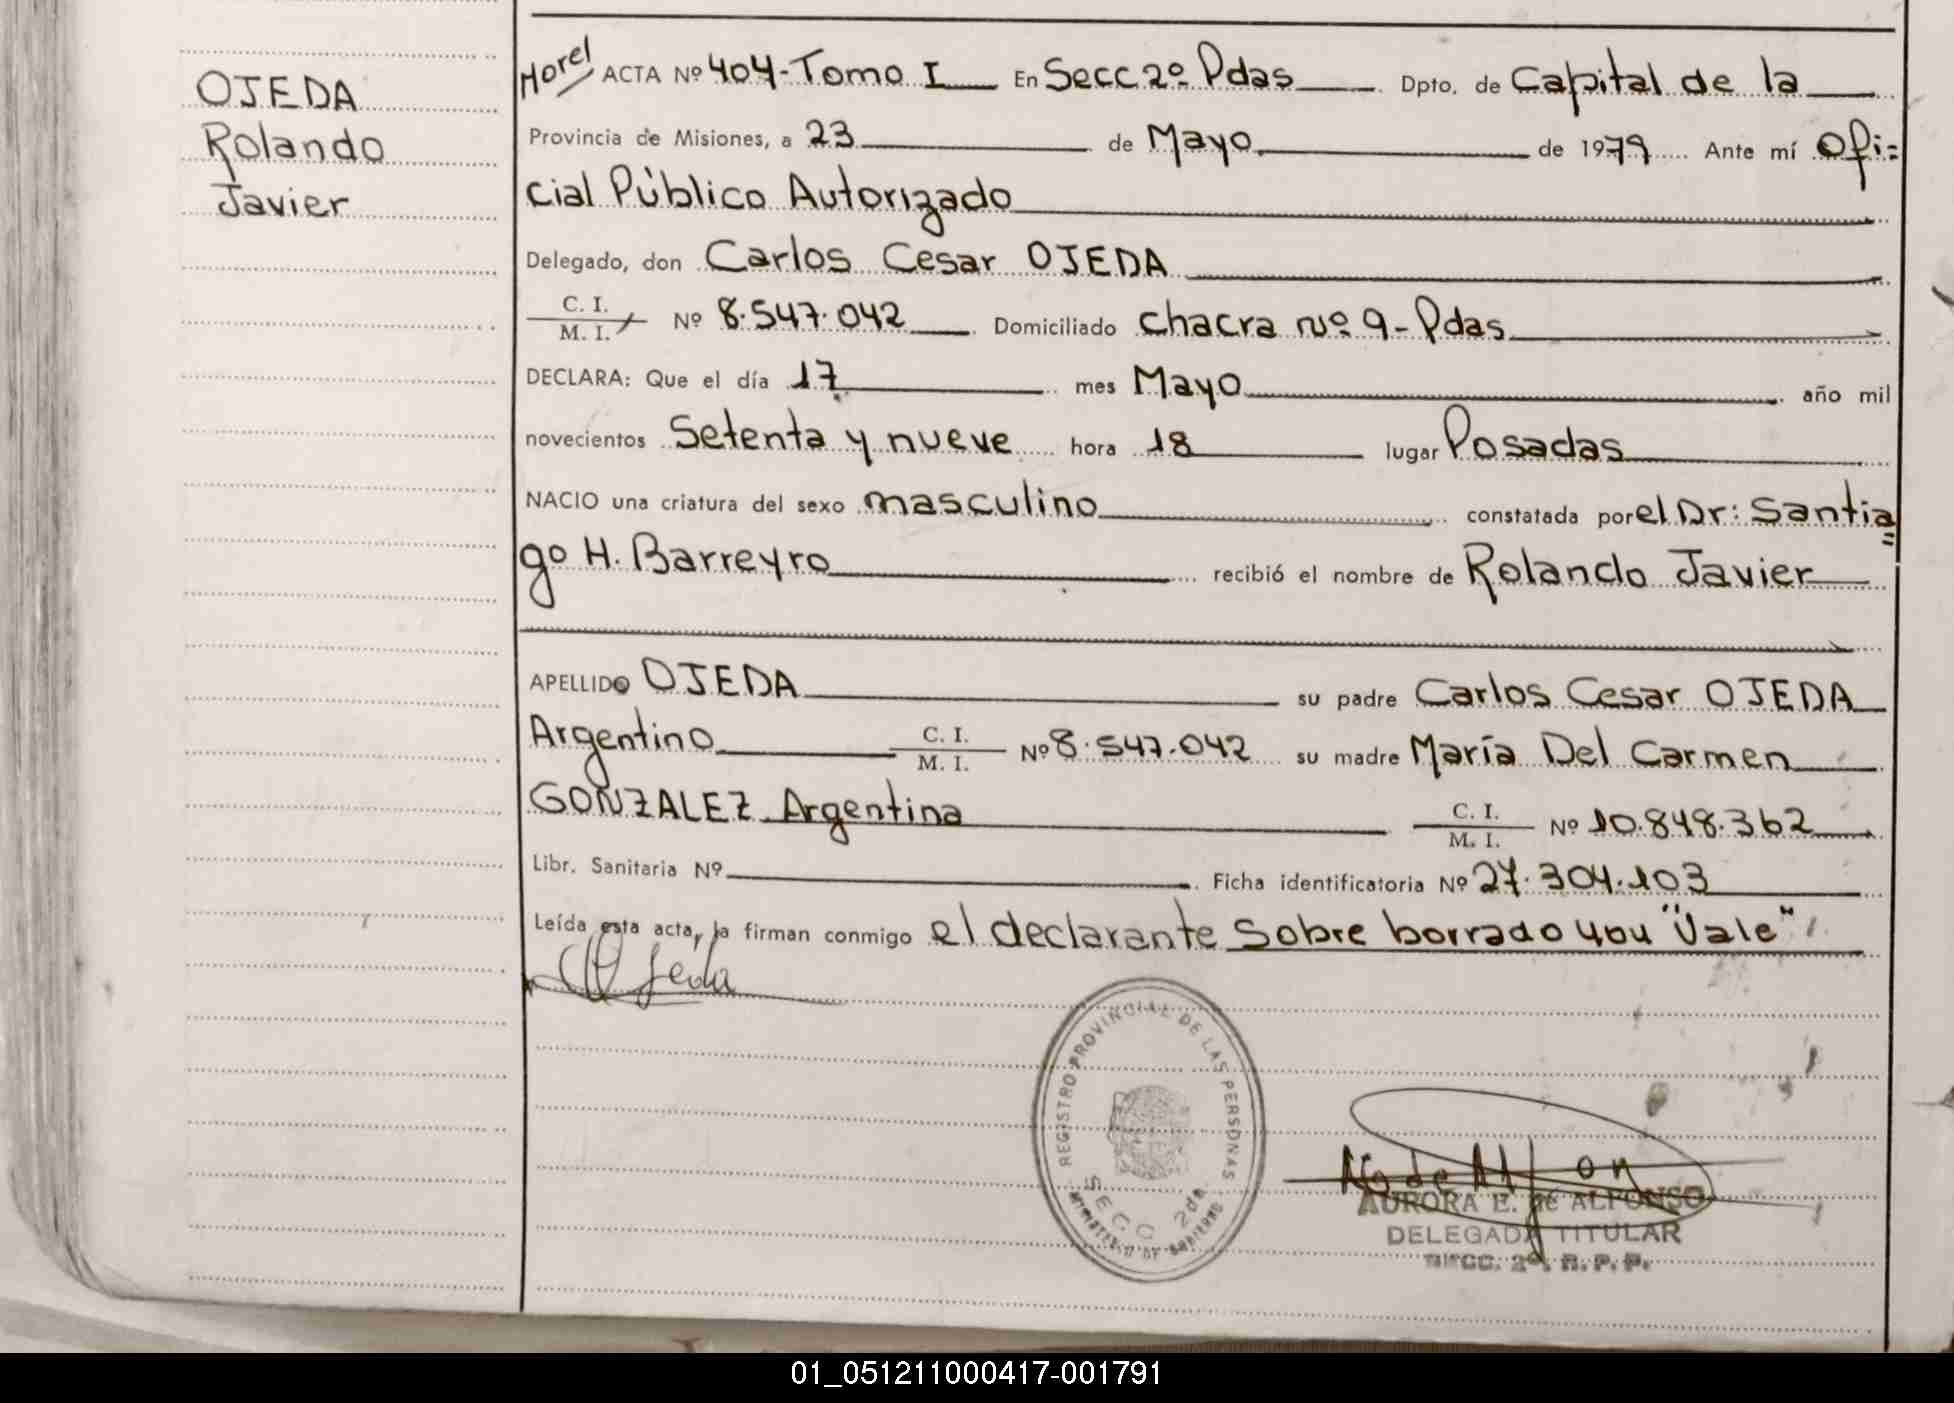 OJEDA
Rolando
Javier
Morel ACTA Nº 404-Tomo I En Secc 2º Pdas Dpto. de Capital de la
Provincia de Misiones, a 23 de Mayo de 1979 Ante mí Ofi=
cial Público Autorizado
Delegado, don Carlos Cesar OJEDA
C. I.
M. I. Nº 8.547.042 Domiciliado chacra nº 9-Pdas
DECLARA: Que el día 17 mes Mayo año mil
novecientos Setenta y nueve hora 18 lugar Posadas
NACIO una criatura del sexo masculino constatada por el Dr: Santia=
go H. Barreyro recibió el nombre de Rolando Javier
APELLIDO OJEDA su padre Carlos Cesar OJEDA
Argentino C. I. M. I. Nº 8.547.042 su madre María Del Carmen
GONZALEZ Argentina C. I. M. I. Nº 10.848.362
Libr. Sanitaria Nº Ficha identificatoria Nº 27.304.103
Leída esta acta, la firman conmigo el declarante Sobre borrado 404 "Vale"
Ojeda
REGISTRO PROVINCIAL DE LAS PERSONAS
SECC 2da
AURORA E. de ALFONSO
DELEGADA TITULAR
SECC. 2ª. R. P. P.
01_051211000417-001791